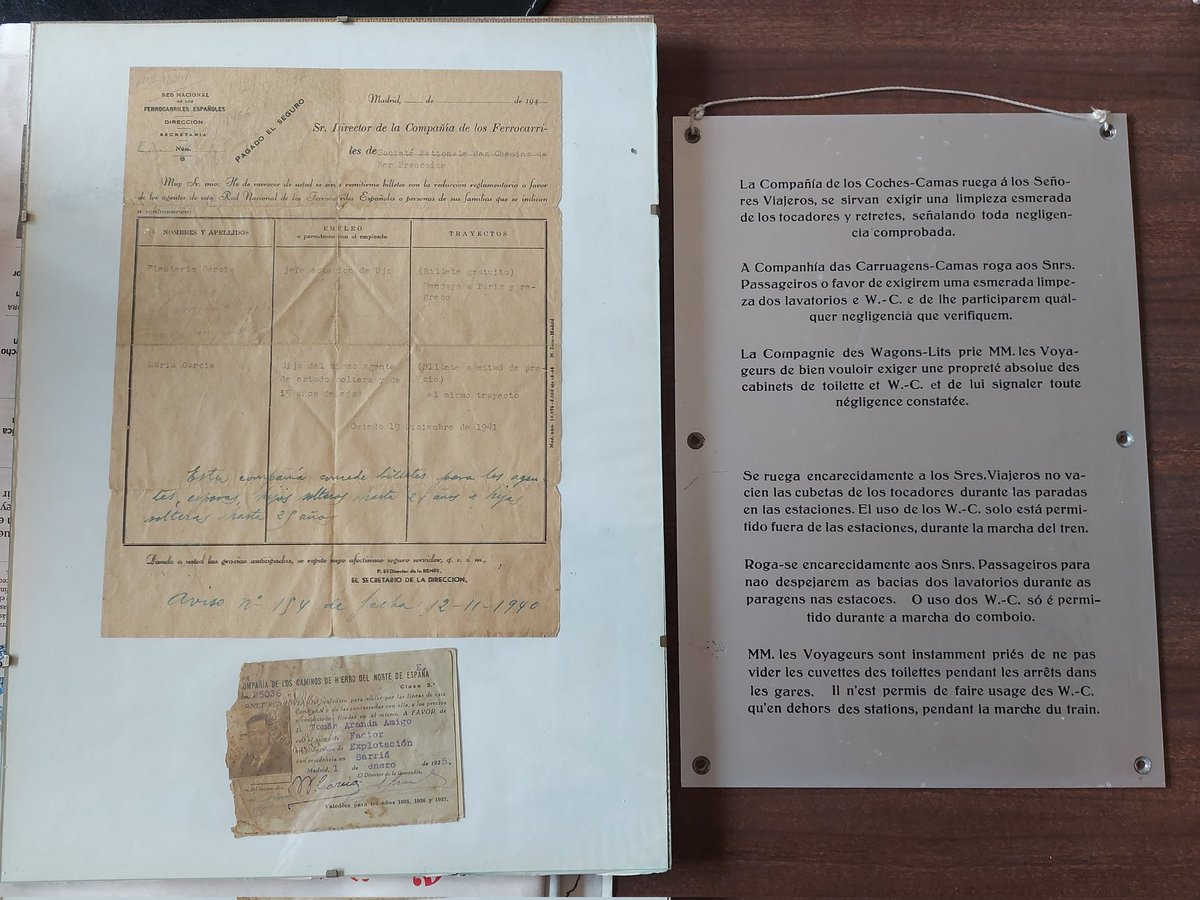 RED NACIONAL
DE LOS
FERROCARRILES ESPAÑOLES
DIRECCION
SECRETARIA
Núm.
PAGADO EL SEGURO
Madrid, de de 194
Sr. Director de la Compañía de los Ferrocarri-
les de Société Nationale des Chemins de
Fer Francaise
Muy Sr. mío: He de merecer de usted se sirva remitirme billetes con la reducción reglamentaria a favor
de los agentes de esta Red Nacional de los Ferrocarriles Españoles o personas de sus familias que se indican
a continuación:
NOMBRES Y APELLIDOS
EMPLEO
o parentesco con el empleado
TRAYECTOS
Eleuterio García
Jefe estación de Ujo
(Billete gratuito)
Hendaya a Paris y re-
greso
María García
Hija del mismo agente
de estado soltera y de
15 años de edad
(Billete a mitad de pre-
cio)
el mismo trayecto
Oviedo 19 Diciembre de 1941
Esta compañía concede billetes para los agen-
tes, esposas, hijos solteros hasta 21 años e hijas
solteras hasta 25 años
Dando a usted las gracias anticipadas, se repite suyo afectísimo seguro servidor, q. e. s. m.,
P. El Director de la RENFE,
EL SECRETARIO DE LA DIRECCION,
Aviso nº 154 de fecha 12-11-1940
E.
OMPAÑIA DE LOS CAMINOS DE HIERRO DEL NORTE DE ESPAÑA
Clase 2.ª
35036
valedero para viajar por las líneas de esta
Compañía y de las concertadas con ella, a los precios
y condiciones fijadas en el mismo, A FAVOR de
D. Tomás Aranda Amigo
Factor
Explotación
con residencia en Sarriá
Madrid, 1 de enero de 1935.
El Director de la Compañía,
Valedero para los años 1935, 1936 y 1937.
La Compañía de los Coches-Camas ruega á los Seño-
res Viajeros, se sirvan exigir una limpieza esmerada
de los tocadores y retretes, señalando toda negligen-
cia comprobada.
A Companhía das Carruagens-Camas roga aos Snrs.
Passageiros o favor de exigirem uma esmerada limpe-
za dos lavatorios e W.-C. e de lhe participarem qual-
quer negligencià que verifiquem.
La Compagnie des Wagons-Lits prie MM. les Voya-
geurs de bien vouloir exiger une propreté absolue des
cabinets de toilette et W.-C. et de lui signaler toute
négligence constatée.
Se ruega encarecidamente a los Sres. Viajeros no va-
cien las cubetas de los tocadores durante las paradas
en las estaciones. El uso de los W.-C. solo está permi-
tido fuera de las estaciones, durante la marcha del tren.
Roga-se encarecidamente aos Snrs. Passageiros para
nao despejarem as bacias dos lavatorios durante as
paragens nas estacoes. O uso dos W.-C. só é permi-
tido durante a marcha do comboio.
MM. les Voyageurs sont instamment priés de ne pas
vider les cuvettes des toilettes pendant les arrêts dans
les gares. Il n'est permis de faire usage des W.-C.
qu'en dehors des stations, pendant la marche du train.